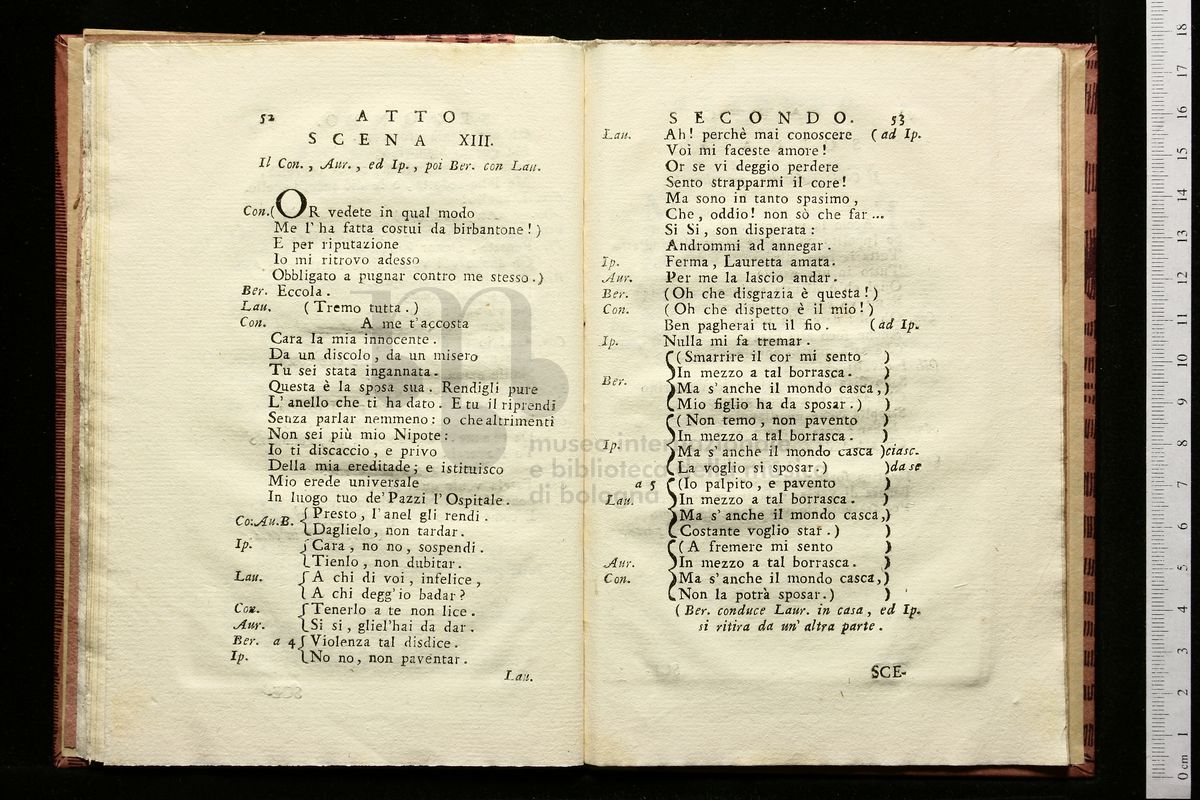 52 ATTO
SCENA XIII.
Il Con., Aur., ed Ip., poi Ber. con Lau.
Con. (OR vedete in qual modo
Me l'ha fatta costui da birbantone!)
E per riputazione
Io mi ritrovo adesso
Obbligato a pugnar contro me stesso.)
Ber. Eccola.
Lau. (Tremo tutta.)
Con. A me t'accosta
Cara la mia innocente.
Da un discolo, da un misero
Tu sei stata ingannata.
Questa è la sposa sua. Rendigli pure
L'anello che ti ha dato. E tu il riprendi
Senza parlar nemmeno: o che altrimenti
Non sei più mio Nipote:
Io ti discaccio, e privo
Della mia ereditade; e istituisco
Mio erede universale
In luogo tuo de' Pazzi l'Ospitale.
Co. Au. B. { Presto, l'anel gli rendi.
Daglielo, non tardar.
Ip. { Cara, no no, sospendi.
Tienlo, non dubitar.
Lau. { A chi di voi, infelice,
A chi degg'io badar?
Con. { Tenerlo a te non lice.
Aur. Si si, gliel'hai da dar.
Ber. a 4 { Violenza tal disdice.
Ip. No no, non paventar.
Lau.
SECONDO. 53
Lau. Ah! perchè mai conoscere (ad Ip.
Voi mi faceste amore!
Or se vi deggio perdere
Sento strapparmi il core!
Ma sono in tanto spasimo,
Che, oddio! non sò che far...
Si Si, son disperata:
Andrommi ad annegar.
Ip. Ferma, Lauretta amata.
Aur. Per me la lascio andar.
Ber. (Oh che disgrazia è questa!)
Con. (Oh che dispetto è il mio!)
Ben pagherai tu il fio. (ad Ip.
Ip. Nulla mi fa tremar.
{ (Smarrire il cor mi sento )
In mezzo a tal borrasca. )
Ber. Ma s'anche il mondo casca,)
Mio figlio ha da sposar.) )
{ (Non temo, non pavento )
In mezzo a tal borrasca. )
Ip. Ma s'anche il mondo casca )ciasc.
La voglio si sposar.) )da se
a 5 { (Io palpito, e pavento )
Lau. In mezzo a tal borrasca. )
Ma s'anche il mondo casca,)
Costante voglio star.) )
{ (A fremere mi sento )
Aur. In mezzo a tal borrasca. )
Con. Ma s'anche il mondo casca,)
Non la potrà sposar.) )
(Ber. conduce Laur. in casa, ed Ip.
si ritira da un' altra parte.
SCE-
museo internazionale
e biblioteca della musica
di bologna
0 cm 1 2 3 4 5 6 7 8 9 10 11 12 13 14 15 16 17 18